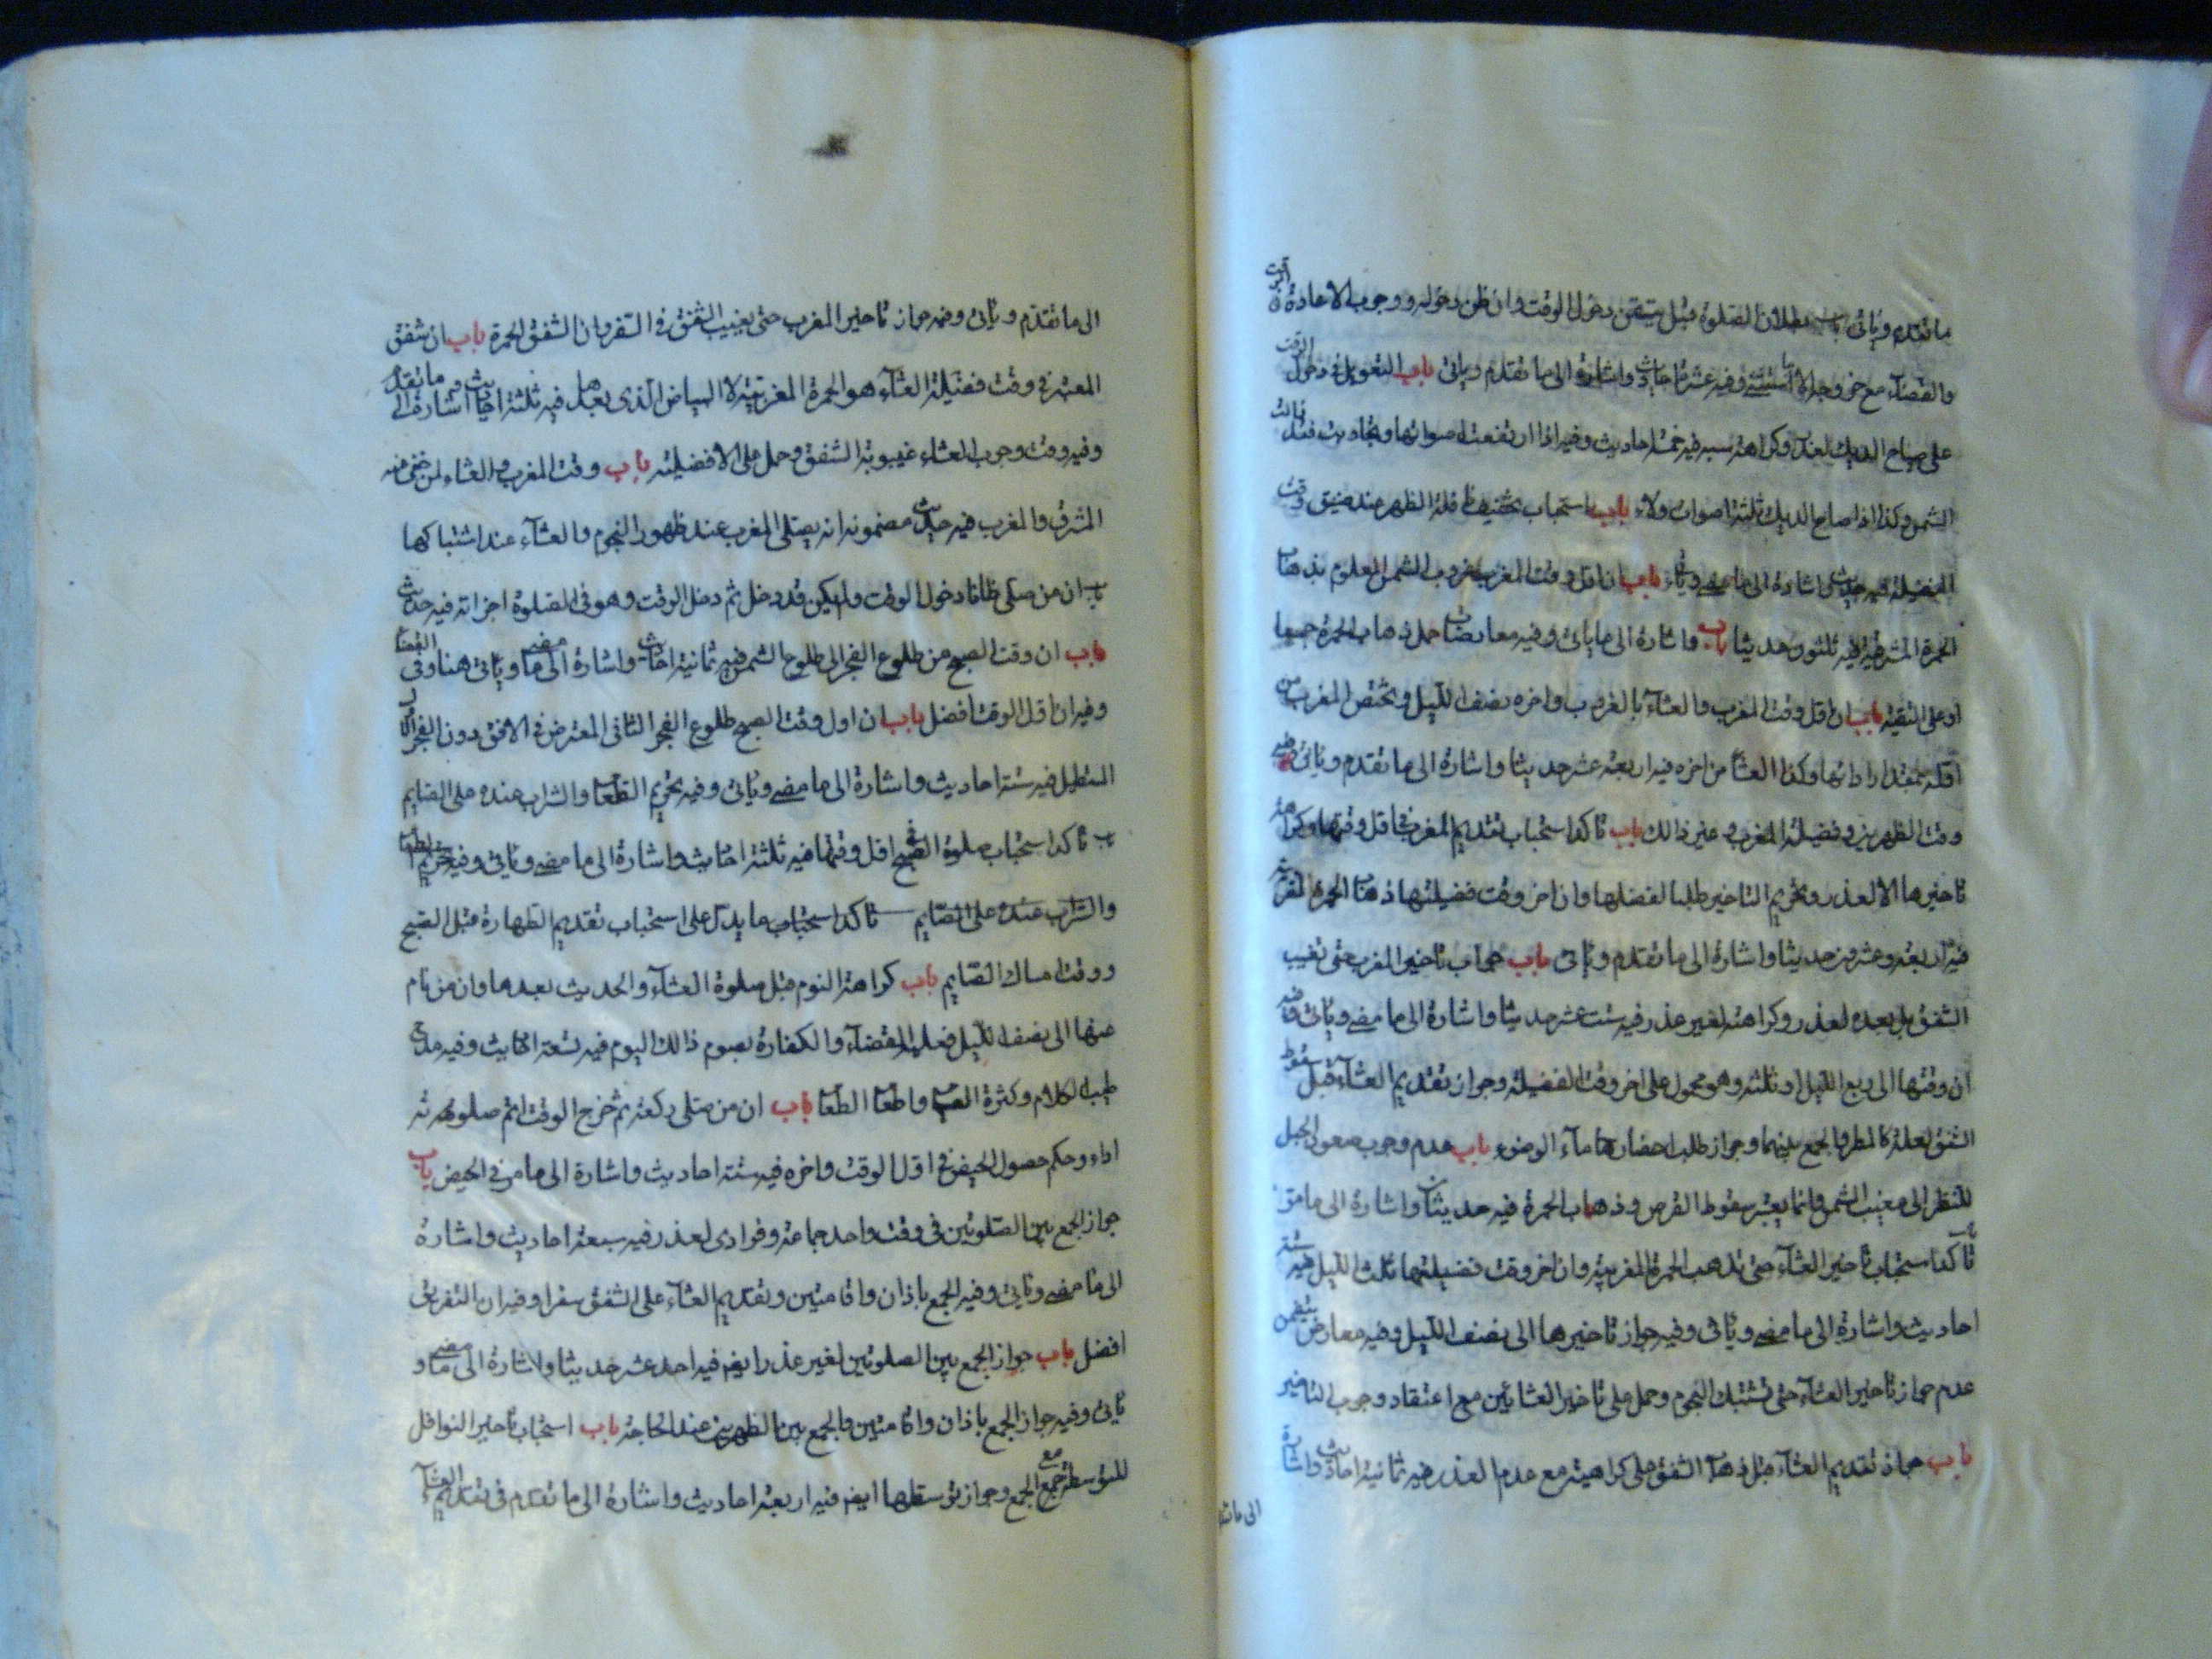 ما تقدم وياتى باب بطلان الصلوة قبل تيقن دخول الوقت وان ظن دخوله ووجوب الاعادة فى الوقت
والقضاء مع خروجه الا ما استثنى وفيه عشرة احاديث واشارة الى ما تقدم وياتى باب التعويل فى دخول الوقت
على صياح الديك لعذر وكراهة سبه فيه خمسة احاديث وفيه اذا ارتفعت اصواتها وتجاوبت فقد زالت
الشمس وكذا اذا صاح الديك ثلثة اصوات ولاء باب استحباب تخفيف نافلة الظهر عند ضيق وقت
الفضيلة فيه حديث اشارة الى ما مضى وياتى باب ان اول وقت المغرب غروب الشمس المعلوم بذهاب
الحمرة المشرقية فيه ثلثون حديثا واشارة الى ما ياتى وفيه معارضات حمل ذهاب الحمرة جميعا
او على التقية باب ان اول وقت المغرب والعشاء بالغروب واخره نصف الليل ويختص المغرب من
اوله بمقدار ادائها وكذا العشا من اخره فيه اربعة عشر حديثا واشارة الى ما تقدم وياتى فيه
وقت الظهرين وفضيلة المغرب وغير ذالك باب تاكد استحباب تقديم المغرب فى اول وقتها وكراهة
تاخيرها الا لعذر وتحريم التاخير طلبا لفضلها وان اخر وقت فضيلتها ذهاب الحمرة المغربية
فيه اربعة وعشرون حديثا واشارة الى ما تقدم وياتى باب جواز تاخير المغرب حتى تغيب
الشفق بل بعده لعذر وكراهته لغير عذر فيه ستة عشر حديثا واشارة الى ما مضى وياتى وفيه
ان وقتها الى ربع الليل او ثلثه وهو محمول على اخر وقت الفضيلة وجواز تقديم العشاء قبل سقوط
الشفق لعلة كالمطر والجمع بينهما وجواز طلب احضارها ماء الوضوء باب عدم وجوب صعود الجبل
للنظر الى مغيب الشمس وانما يعتبر سقوط القرص وذهاب الحمرة فيه حديثان واشارة الى ما مر
باب تاكد استحباب تاخير العشاء حتى تذهب الحمرة المغربية وان اخر وقت فضيلتها ثلث الليل فيه ستة
احاديث واشارة الى ما مضى وياتى وفيه جواز تاخيرها الى نصف الليل وفيه معارض يتضمن
عدم جواز تاخير العشاء حتى تشتبك النجوم وحمل على تاخير العشائين مع اعتقاد وجوب التاخير
باب جواز تقديم العشاء قبل ذهاب الشفق على كراهية مع عدم العذر فيه ثمانية احاديث واشارة
الى ما تقدم
الى ما تقدم وياتى وفيه جواز تاخير المغرب حتى يغيب الشفق فى السفر وان الشفق الحمرة باب ان شفق
المعتبر فى وقت فضيلة العشاء هو الحمرة المغربية لا البياض الذى بعدها فيه ثلثة احاديث واشارة الى ما تقدم
وفيه وقت وجوب العشاء غيبوبة الشفق وحمل على الافضلية باب وقت المغرب والعشاء لمن خفى عنه
المشرق والمغرب فيه حديث مضمونه انه يصلى المغرب عند ظهور النجوم والعشاء عند اشتباكها
باب ان من صلى ظانا دخول الوقت ولم يكن قد دخل ثم دخل الوقت وهو فى الصلوة اجزاته فيه حديث
باب ان وقت الصبح من طلوع الفجر الى طلوع الشمس فيه ثمانية احاديث واشارة الى ما مضى وياتى هنا وفى القضاء
وفيه ان اول الوقت افضل باب ان اول وقت الصبح طلوع الفجر الثانى المعترض فى الافق دون الفجر الاول
المستطيل فيه ستة احاديث واشارة الى ما مضى وياتى وفيه تحريم الطعام والشراب عنده على الصايم
باب تاكد استحباب صلوة الصبح فى اول وقتها فيه ثلثة احاديث واشارة الى ما مضى وياتى وفيه تحريم الطعام
والشراب عنده على الصايم تاكد استحباب ما يدل على استحباب تقديم الطهارة قبل الصبح
ووقت امساك الصايم باب كراهة النوم قبل صلوة العشاء والحديث بعدها وان من نام
عنها الى نصف الليل فعليه القضاء والكفارة بصوم ذالك اليوم فيه تسعة احاديث وفيه مدح
طيب الكلام وكثرة الصيام واطعام الطعام باب ان من صلى ركعة ثم خرج الوقت اتم صلوته
اداء وحكم حصول الحيض فى اول الوقت واخره فيه ستة احاديث واشارة الى ما مر فى الحيض باب
جواز الجمع بين الصلوتين فى وقت واحد جماعة وفرادى لعذر فيه سبعة احاديث واشارة
الى ما مضى وياتى وفيه الجمع باذان واقامتين وتقديم العشاء على الشفق سفرا وفيه ان التفريق
افضل باب جواز الجمع بين الصلوتين لغير عذر ايضا فيه احد عشر حديثا واشارة الى ما مضى و
ياتى وفيه جواز الجمع باذان واقامتين والجمع بين الظهرين عند الحاجة باب استحباب تاخير النوافل
المتوسطة مع الجمع وجواز توسطها ايضا فيه اربعة احاديث واشارة الى ما تقدم فى تقديم العشاء